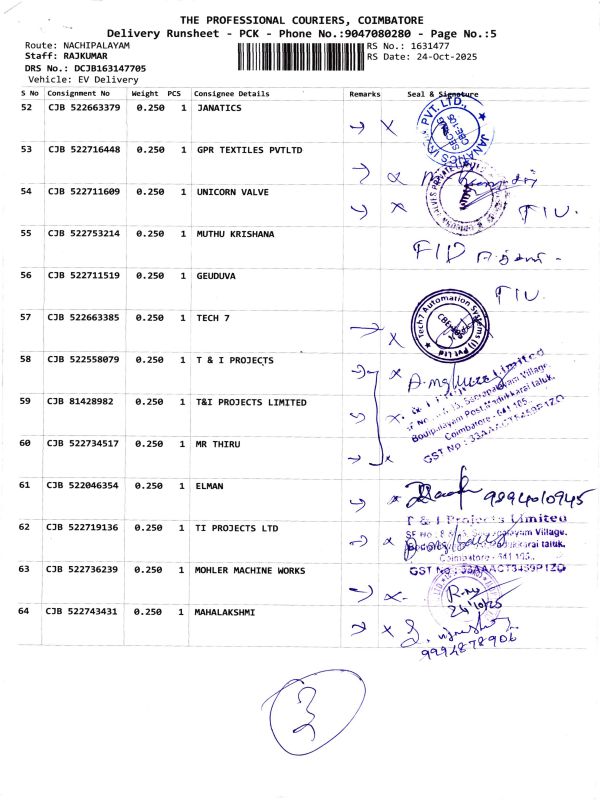 THE PROFESSIONAL COURIERS, COIMBATORE
Delivery Runsheet - PCK - Phone No.:9047080280 - Page No.:5
Route: NACHIPALAYAM RS No.: 1631477
Staff: RAJKUMAR RS Date: 24-Oct-2025
DRS No.: DCJB163147705
Vehicle: EV Delivery
S No Consignment No Weight PCS Consignee Details Remarks Seal & Signature
52 CJB 522663379 0.250 1 JANATICS
53 CJB 522716448 0.250 1 GPR TEXTILES PVTLTD
54 CJB 522711609 0.250 1 UNICORN VALVE
55 CJB 522753214 0.250 1 MUTHU KRISHANA
56 CJB 522711519 0.250 1 GEUDUVA
57 CJB 522663385 0.250 1 TECH 7
Tech7 Automation Systems (I) Pvt Ltd
58 CJB 522558079 0.250 1 T & I PROJECTS
59 CJB 81428982 0.250 1 T&I PROJECTS LIMITED
Coimbatore - 641 105.
60 CJB 522734517 0.250 1 MR THIRU
61 CJB 522046354 0.250 1 ELMAN
9994010945
T & I Projects Limited
62 CJB 522719136 0.250 1 TI PROJECTS LTD
Coimbatore - 641 105.
63 CJB 522736239 0.250 1 MOHLER MACHINE WORKS
24/10/25
64 CJB 522743431 0.250 1 MAHALAKSHMI
9994878906